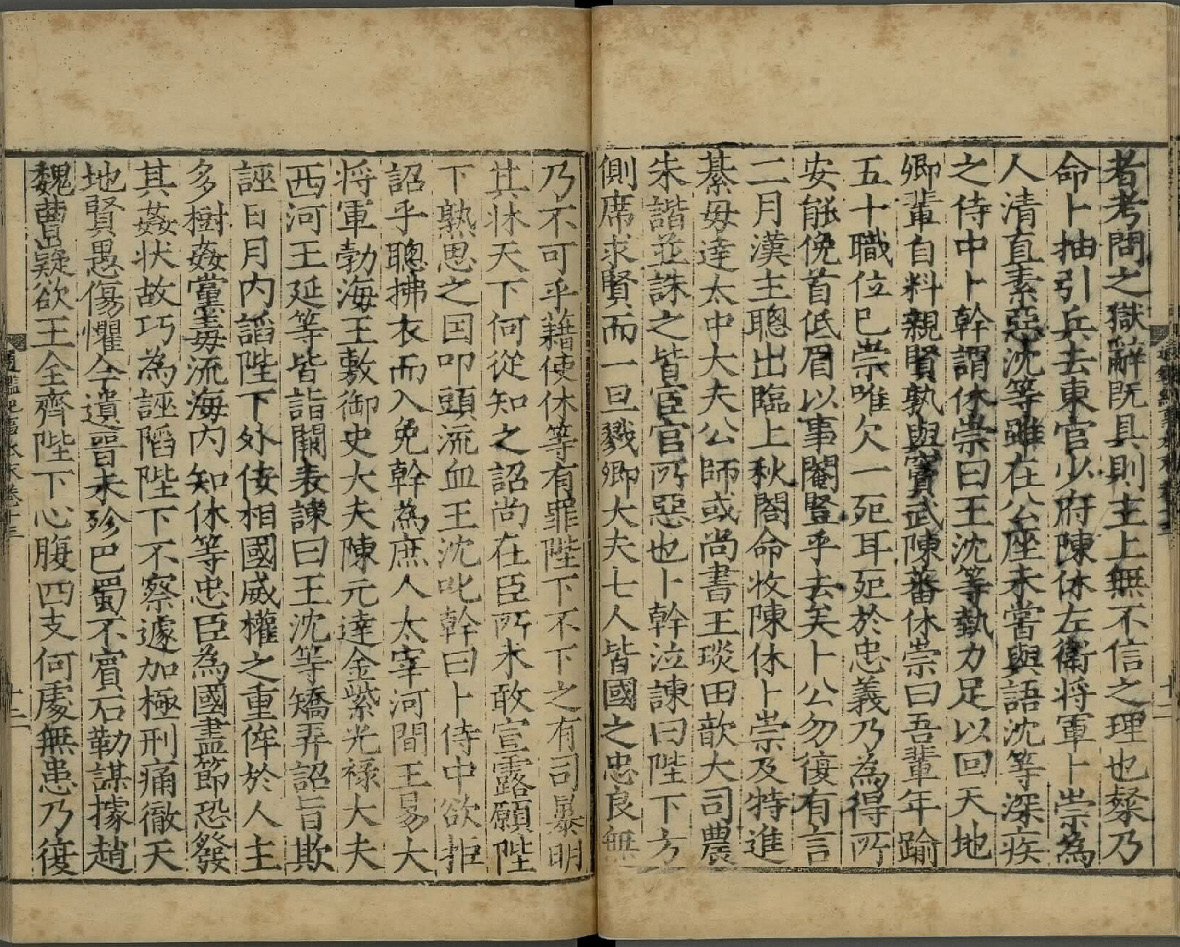 者考問之獄辭既具則主上無不信之理也粲乃
命卜抽引兵去東宮少府陳休左衛将軍卜崇為
人清直素惡沈等雖在公座未嘗與語沈等深疾
之侍中卜幹謂休崇曰王沈等勢力足以回天地
卿輩自料親賢孰與竇武陳蕃休崇曰吾輩年踰
五十職位已崇唯欠一死耳死於忠義乃為得所
安能俛首低眉以事閹豎乎去矣卜公勿復有言
二月漢主聰出臨上秋閣命收陳休卜崇及特進
綦毋達太中大夫公師彧尚書王琰田歆大司農
朱諧並誅之皆宦官所惡也卜幹泣諫曰陛下方
側席求賢而一旦戮卿大夫七人皆國之忠良無
乃不可乎藉使休等有罪陛下不下之有司暴明
其状天下何從知之詔尚在臣所未敢宣露願陛
下熟思之因叩頭流血王沈叱幹曰卜侍中欲拒
詔乎聰拂衣而入免幹為庶人太宰河間王易大
将軍勃海王敷御史大夫陳元達金紫光祿大夫
西河王延等皆詣闕表諫曰王沈等矯弄詔旨欺
誣日月内謟陛下外佞相國威權之重侔於人主
多樹姦黨毒流海内知休等忠臣為國盡節恐發
其姦状故巧為誣陷陛下不察遽加極刑痛徹天
地賢愚傷懼今遺晉未殄巴蜀不賓石勒謀據趙
魏曹嶷欲王全齊陛下心腹四支何處無患乃復
通鑑紀事本末卷十三
十二